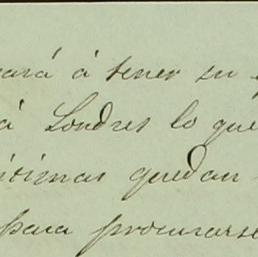 ará á tener su
á Londres lo que
ísimas quedan
para procurarse